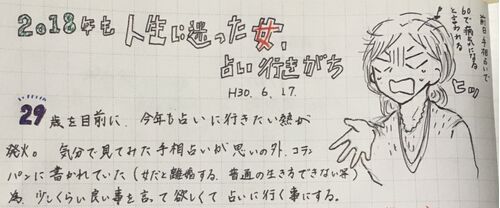 2018年も人生に迷った女、
占い行きがち
H30.6.17.
前日手相占いで
60で病気になる
と言われる
ヒッ
29歳を目前に、今年も占いに行きたい熱が
発火。気分で見てみた手相占いが思いの外、コテン
パンに書かれていた(女だと離婚する、普通の生き方できない等)
為、少しくらい良い事を言って欲しくて占いに行く事にする。